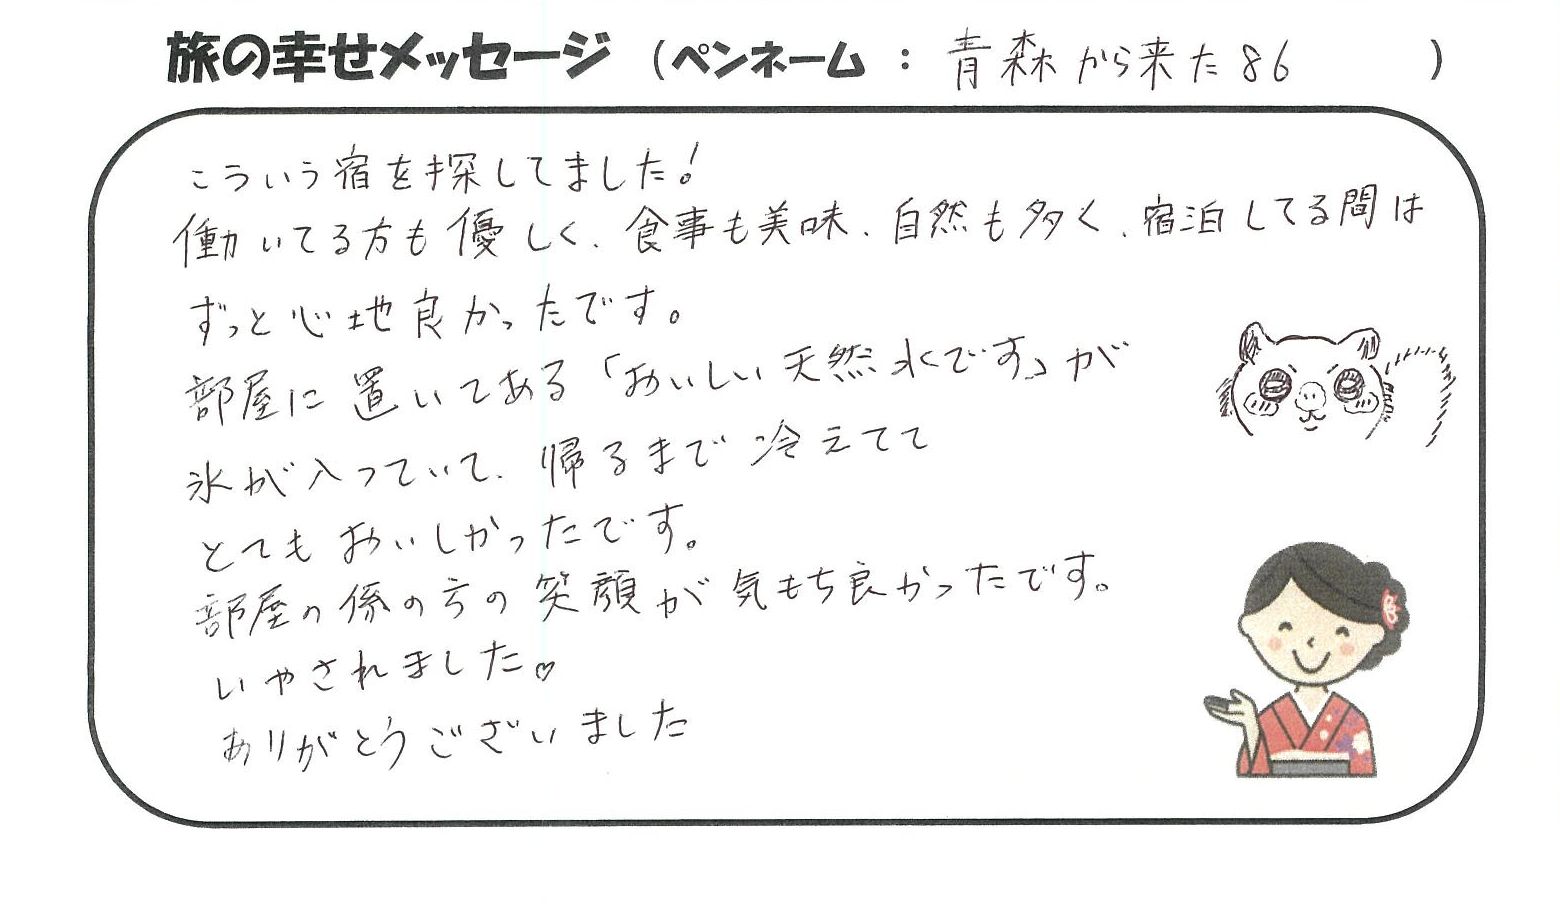 旅の幸せメッセージ （ペンネーム ： 青森から来た86 ）
こういう宿を探してました！
働いてる方も優しく、食事も美味、自然も多く、宿泊してる間は
ずっと心地良かったです。
部屋に置いてある「おいしい天然水です」が
氷が入っていて、帰るまで冷えてて
とてもおいしかったです。
部屋の係の方の笑顔が気もち良かったです。
いやされました♡
ありがとうございました